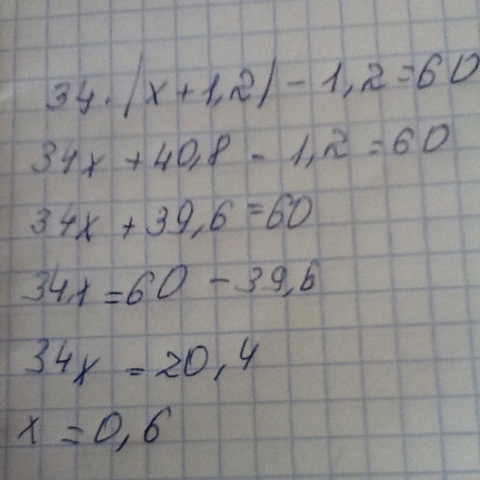 34·(x+1,2)-1,2=60
34x+40,8-1,2=60
34x+39,6=60
34x=60-39,6
34x=20,4
x=0,6